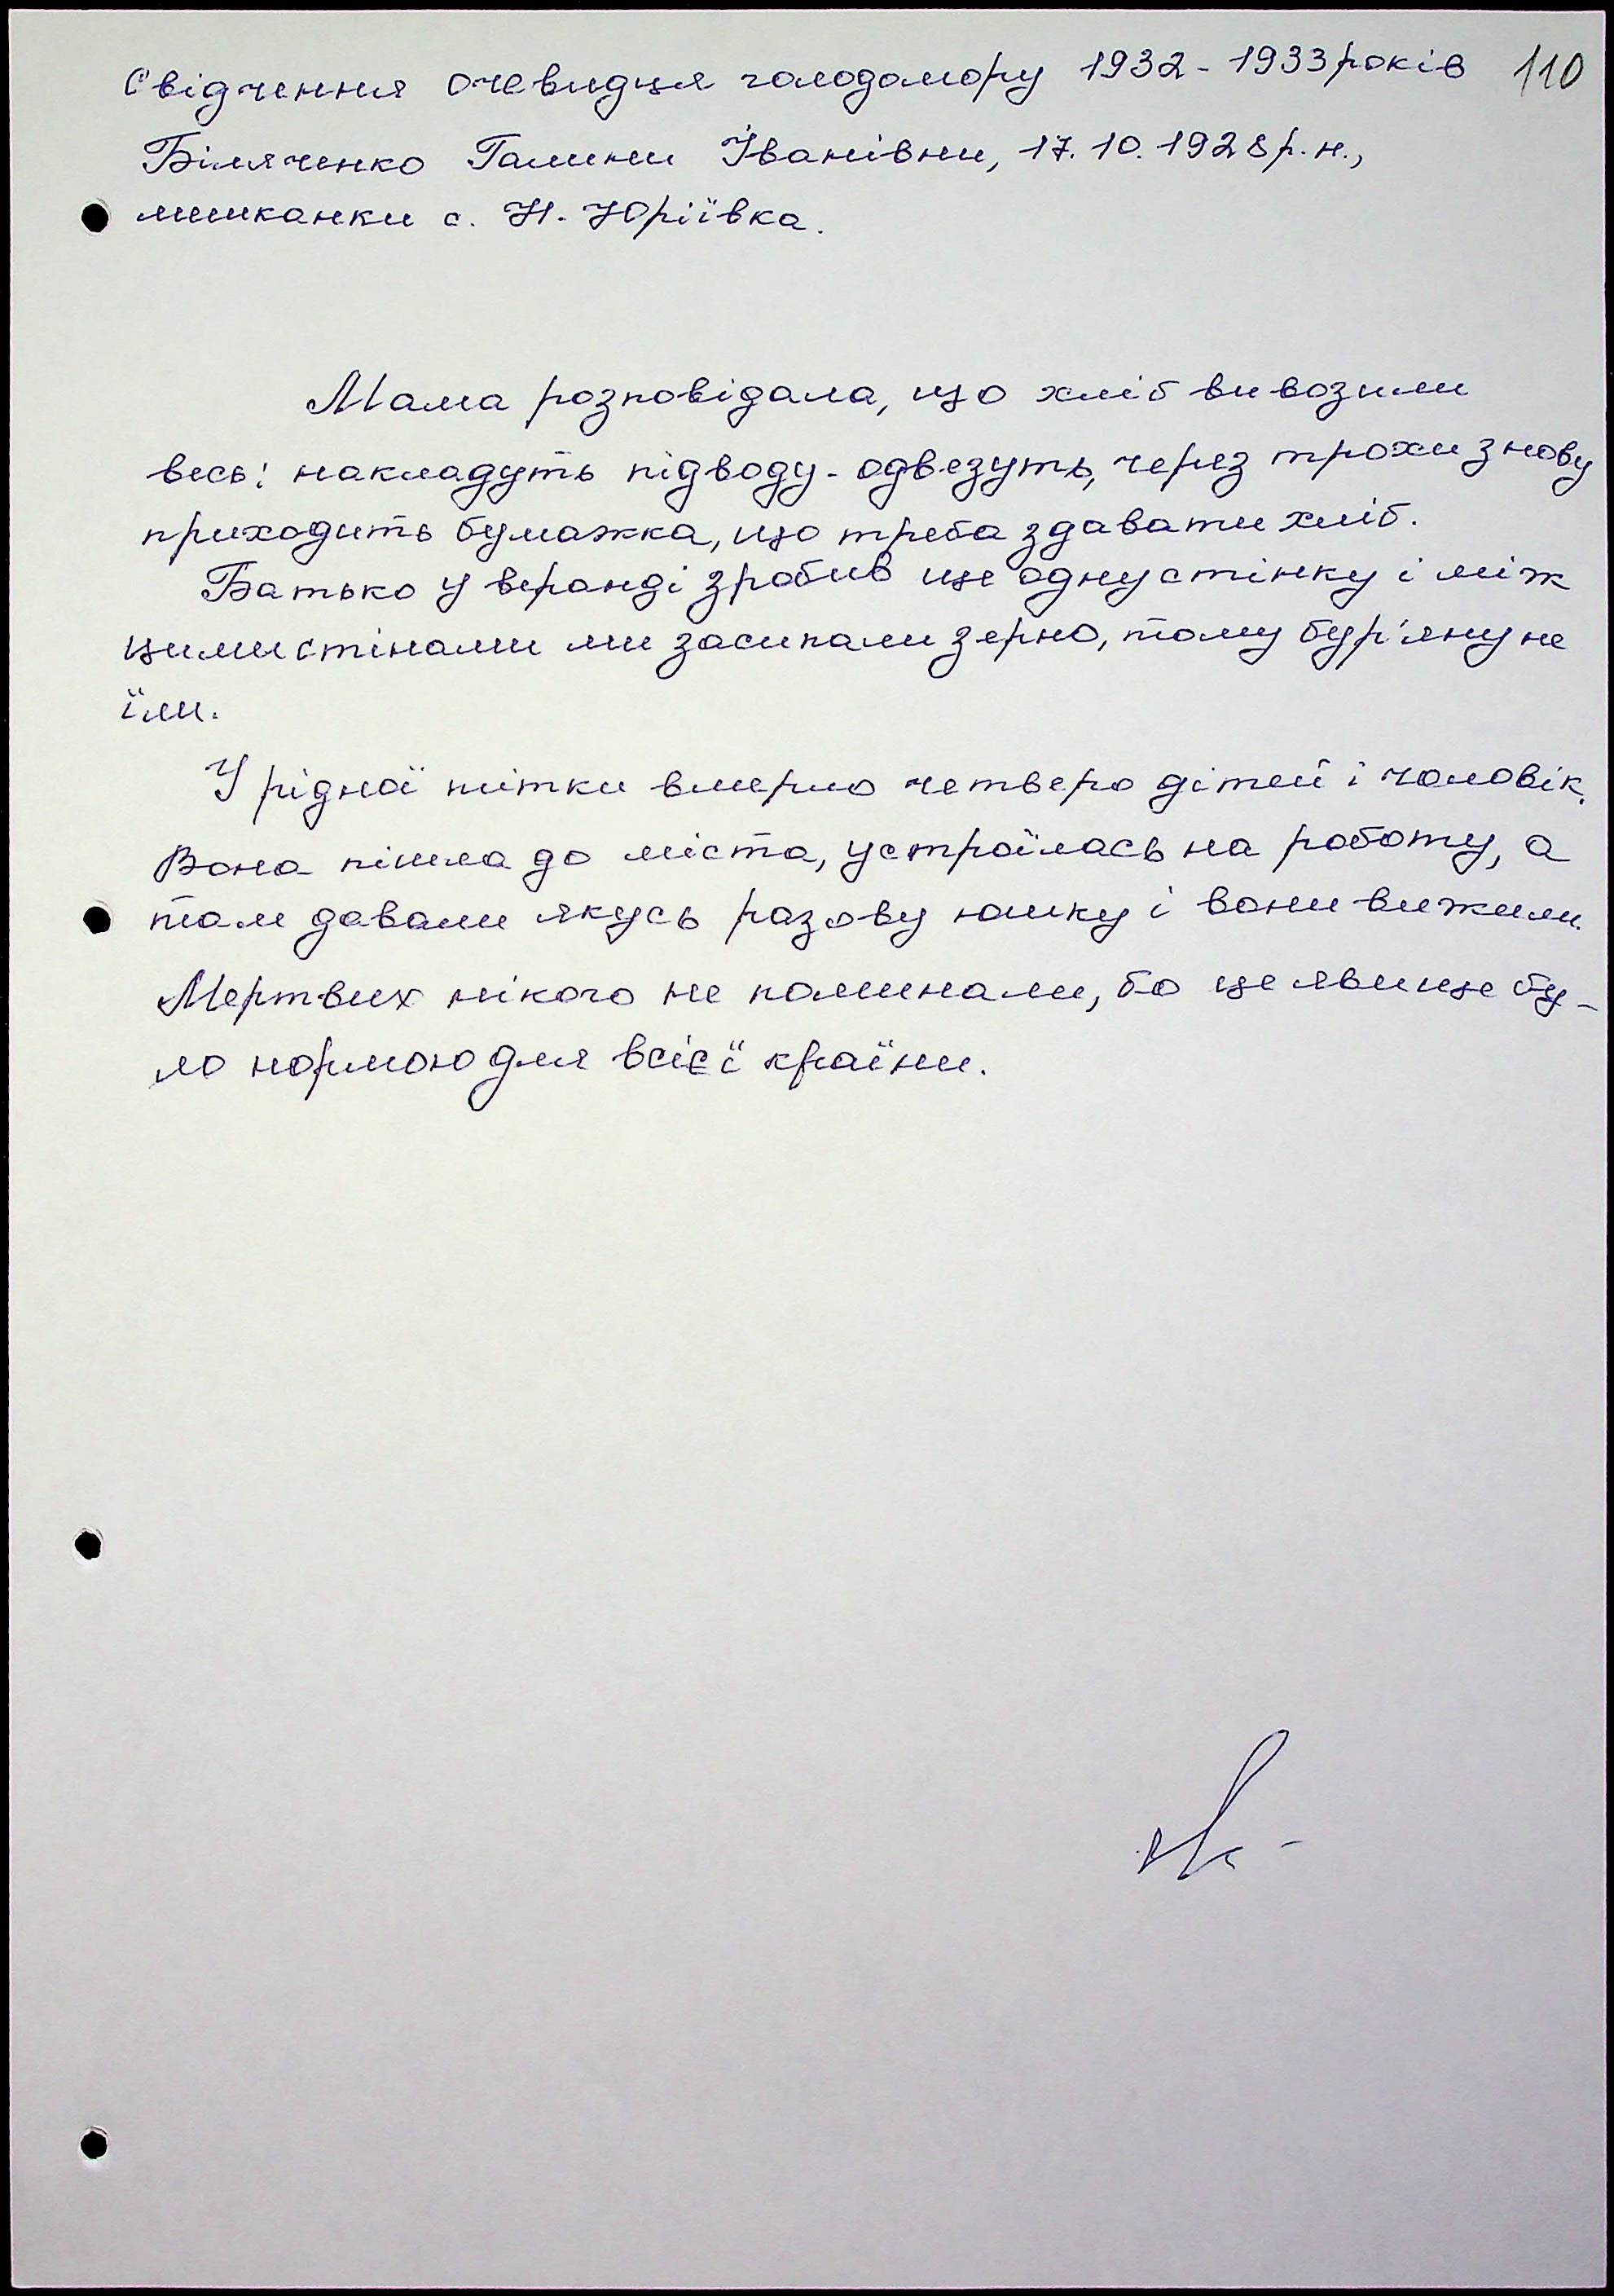 Свідчення очевидця голодомору 1932-1933 років 110
Біляченко Галини Іванівни, 17.10.1928 р.н.,
мешканки с. Н-Юріївка.
Мама розповідала, що хліб вивозили
весь: накладуть підводу-одвезуть, через трохи знову
приходить бумажка, що треба здавати хліб.
Батько у веранді зробив ще одну стінку і між
цими стінами ми засипали зерно, тому бур'яну не
їли.
У рідної тітки вмерло четверо дітей і чоловік.
Вона пішла до міста, устроїлась на роботу, а
там давали якусь разову юшку і вони вижили.
Мертвих нікого не поминали, бо це явище бу-
ло нормою для всієї країни.